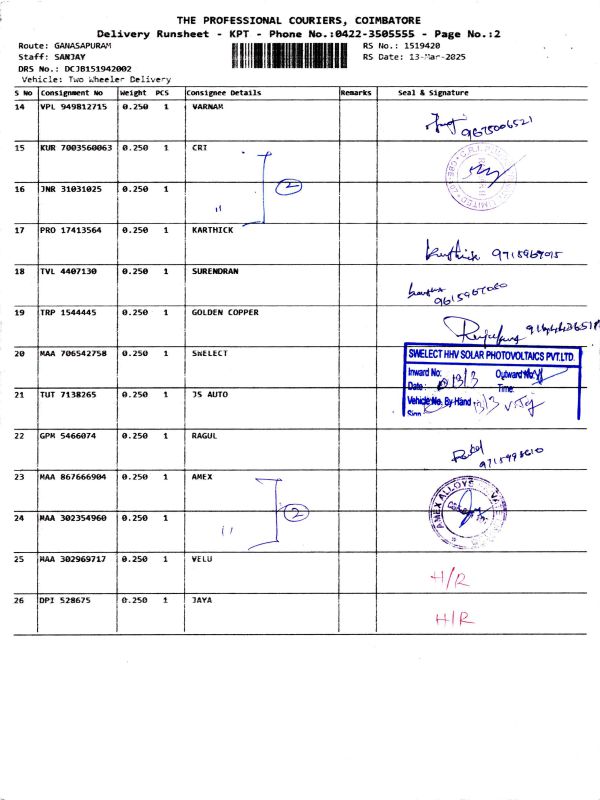 THE PROFESSIONAL COURIERS, COIMBATORE
Delivery Runsheet - KPT - Phone No.:0422-3505555 - Page No.:2
Route: GANASAPURAM RS No.: 1519420
Staff: SANJAY RS Date: 13-Mar-2025
DRS No.: DCJB151942002
Vehicle: Two Wheeler Delivery
S No Consignment No Weight PCS Consignee Details Remarks Seal & Signature
14 VPL 949812715 0.250 1 VARNAM
9675006521
15 KUR 7003560063 0.250 1 CRI
2
16 JNR 31031025 0.250 1 "
17 PRO 17413564 0.250 1 KARTHICK
Karthick 9715969015
18 TVL 4407130 0.250 1 SURENDRAN
19 TRP 1544445 0.250 1 GOLDEN COPPER
20 MAA 706542758 0.250 1 SWELECT
SWELECT HHV SOLAR PHOTOVOLTAICS PVT.LTD.
Inward No: Outward No:
Date: 13/3 Time:
Vehicle No. By Hand 13/3
Sign
21 TUT 7138265 0.250 1 JS AUTO
22 GPM 5466074 0.250 1 RAGUL
23 MAA 867666904 0.250 1 AMEX
2
AMEX ALLOYS
24 MAA 302354960 0.250 1 "
25 MAA 302969717 0.250 1 VELU
H/R
26 DPI 528675 0.250 1 JAYA
H/R